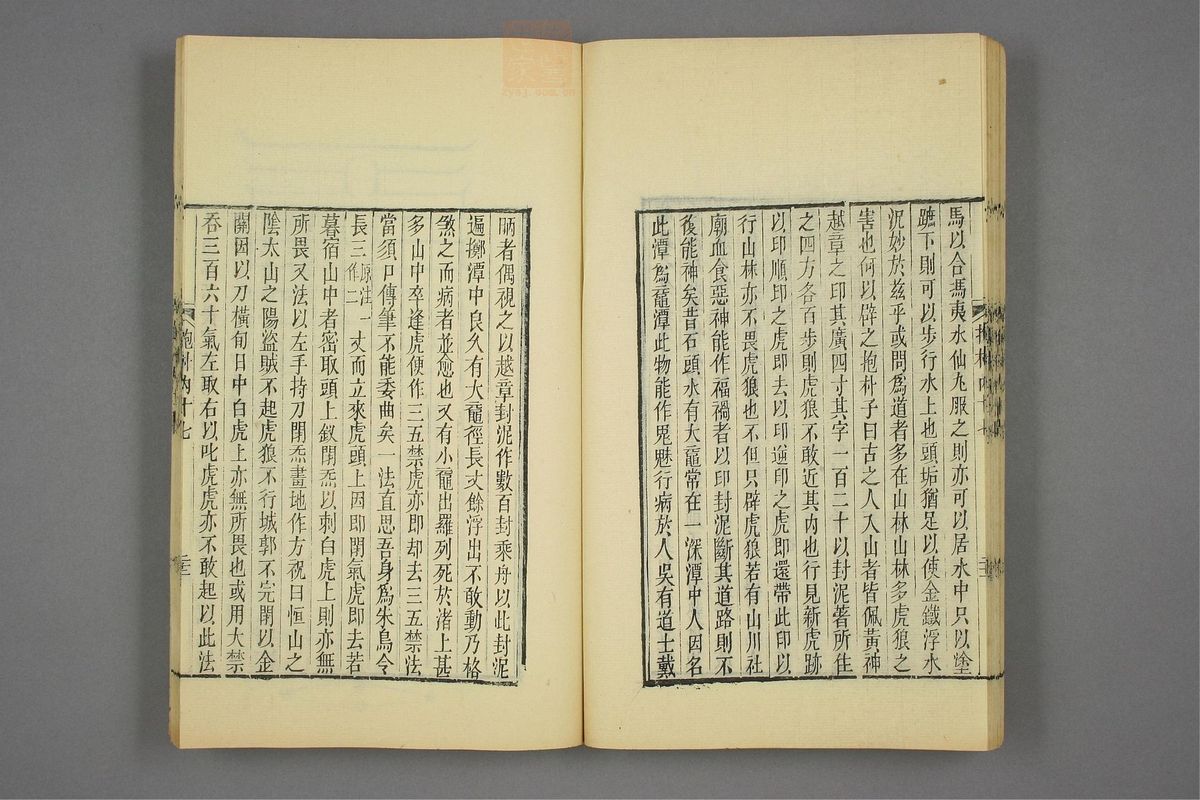 馬以合馮夷水仙丸服之則亦可以居水中只以塗
蹠下則可以步行水上也頭垢猶足以使金鐵浮水
況妙於兹乎或問爲道者多在山林山林多虎狼之
害也何以辟之抱朴子曰古之人入山者皆佩黃神
越章之印其廣四寸其字一百二十以封泥著所住
之四方各百步則虎狼不敢近其内也行見新虎跡
以印順印之虎即去以印逆印之虎即還帶此印以
行山林亦不畏虎狼也不但只辟虎狼若有山川社
廟血食惡神能作福禍者以印封泥斷其道路則不
復能神矣昔石頭水有大黿常在一深潭中人因名
此潭爲黿潭此物能作鬼魅行病於人吳有道士戴
昞者偶視之以越章封泥作數百封乘舟以此封泥
遍擲潭中良久有大黿徑長丈餘浮出不敢動乃格
煞之而病者並愈也又有小黿出羅列死於渚上甚
多山中卒逢虎便作三五禁虎亦即却去三五禁法
當須口傳筆不能委曲矣一法直思吾身爲朱鳥令
長三原注一作二丈而立來虎頭上因即閉氣虎即去若
暮宿山中者密取頭上釵閉炁以刺白虎上則亦無
所畏又法以左手持刀閉炁畫地作方祝曰恒山之
陰太山之陽盜賊不起虎狼不行城郭不完閉以金
關因以刀橫旬日中白虎上亦無所畏也或用大禁
吞三百六十氣左取右以叱虎虎亦不敢起以此法
抱朴内十七